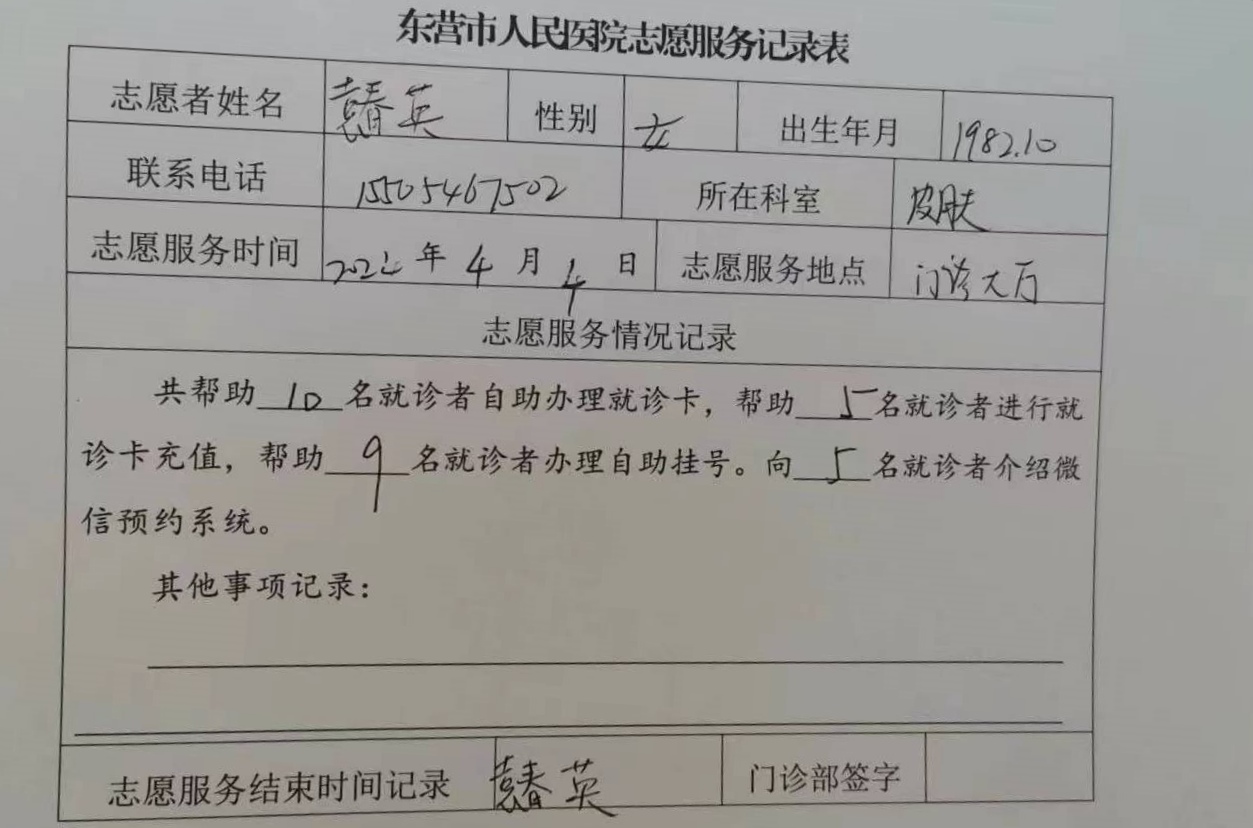 东营市人民医院志愿服务记录表
志愿者姓名 袁春英 性别 女 出生年月 1982.10
联系电话 15505467502 所在科室 皮肤
志愿服务时间 2022年4月4日 志愿服务地点 门诊大厅
志愿服务情况记录
共帮助10名就诊者自助办理就诊卡，帮助5名就诊者进行就
诊卡充值，帮助9名就诊者办理自助挂号。向5名就诊者介绍微
信预约系统。
其他事项记录：
志愿服务结束时间记录 袁春英 门诊部签字